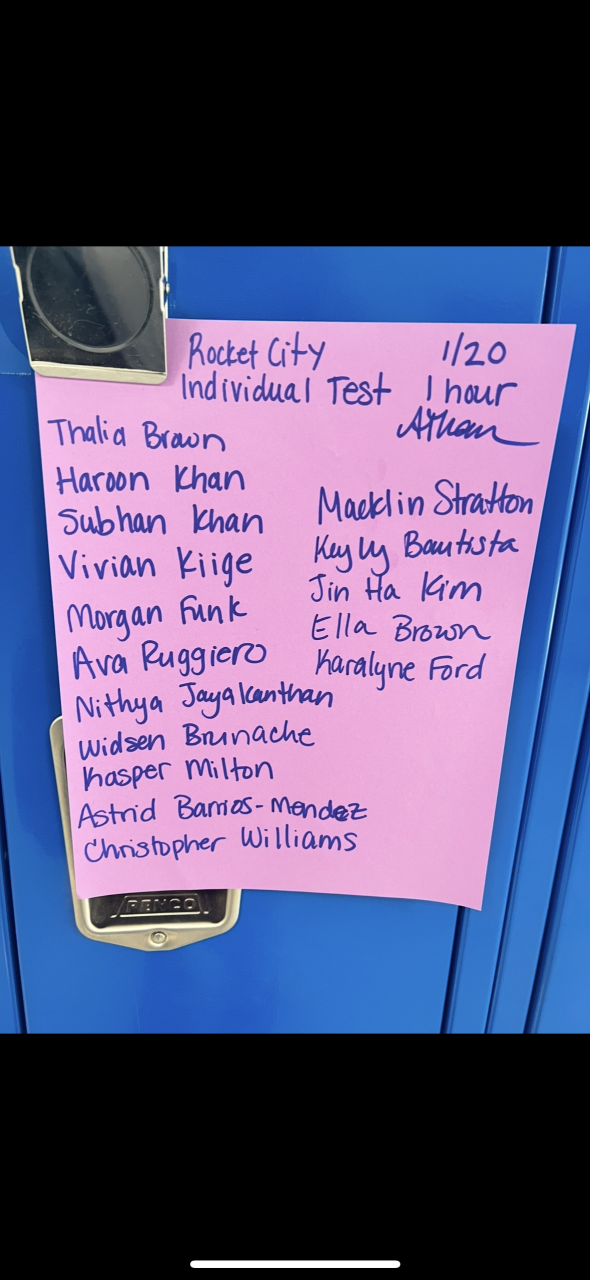 Rocket City 1/20
Individual Test 1 hour
Thalia Brown
Haroon Khan
Subhan Khan
Vivian Kiige
Morgan Funk
Ava Ruggiero
Nithya Jayakanthan
Widsen Brunache
Kasper Milton
Astrid Barrios-Mendez
Christopher Williams
Macklin Stratton
Keyly Bautista
Jin Ha Kim
Ella Brown
Karalyne Ford
PENCO